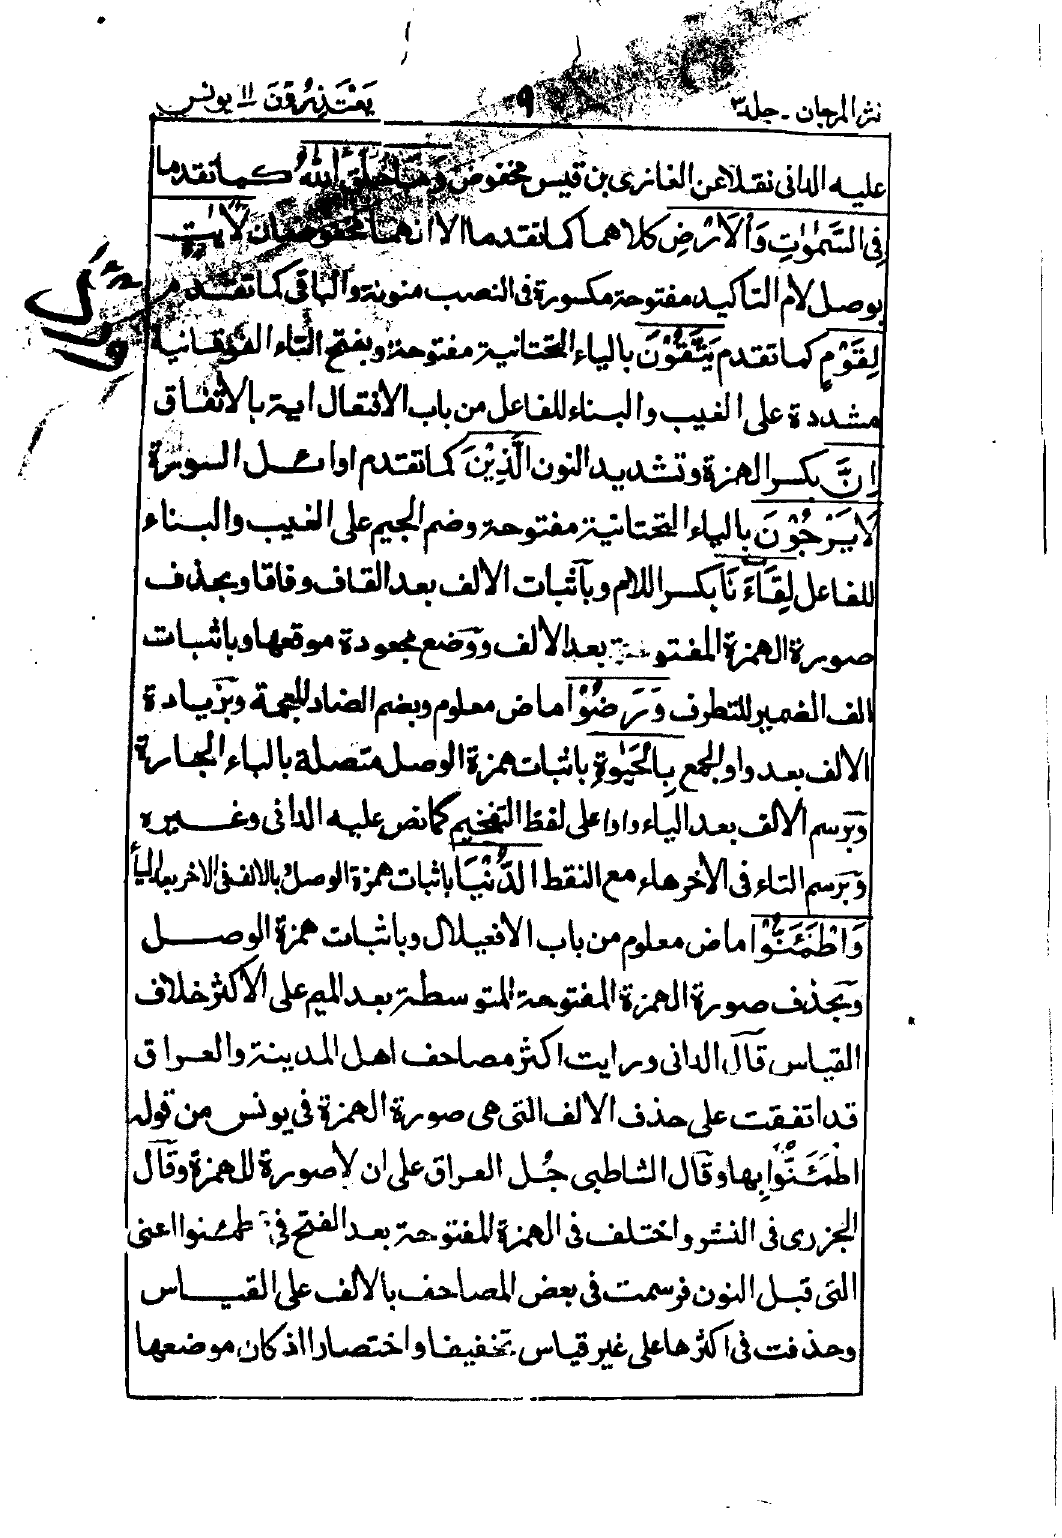 نثر المرجان - جلد ۳
۹
يَعْتَذِرُوْنَ ۱۱ يونس
عليه الدانى نقلا عن الغازى بن قيس مخفوض وَمَا خَلَقَ اللّٰهُ كما تقدما
فِى السَّمٰوٰتِ وَالْاَرْضِ كلاهما كما تقدما الا انهما مخفوضان لَاٰيٰتٍ
بوصل لام التاكيد مفتوحة مكسورة فى النصب منونة والباقى كما تقدم
لِقَوْمٍ كما تقدم يَتَّقُوْنَ بالياء التحتانية مفتوحة وبفتح التاء الفوقانية
مشددة على الغيب والبناء للفاعل من باب الافتعال اية بالاتفاق
اِنَّ بكسر الهمزة وتشديد النون الَّذِيْنَ كما تقدم اوائل السورة
لَا يَرْجُوْنَ بالياء التحتانية مفتوحة وضم الجيم على الغيب والبناء
للفاعل لِقَاءَنَا بكسر اللام وبآثبات الالف بعد القاف وفاقا وبحذف
صورة الهمزة المفتوحة بعد الالف ووضع مجعودة موقعها وباثبات
الف الضمير للتطرف وَرَضُوْا ماض معلوم وبضم الضاد المعجمة وبزيادة
الالف بعد واو الجمع بِالْحَيٰوةِ باثبات همزة الوصل متصلة بالباء الجارة
وبرسم الالف بعد الياء واوا على لفظ التفخيم كما نص عليه الدانى وغيره
وبرسم التاء فى الاخر هاء مع النقط الدُّنْيَا باثبات همزة الوصل بالالف فى الاخر بعد الياء
وَاطْمَئَنُّوْا ماض معلوم من باب الافعيلال وباثبات همزة الوصل
وبحذف صورة الهمزة المفتوحة المتوسطة بعد الميم على الاكثر خلاف
القياس قال الدانى ورايت اكثر مصاحف اهل المدينة والعراق
قد اتفقت على حذف الالف التى هى صورة الهمزة فى يونس من قوله
اطْمَئَنُّوْا بها وقال الشاطبى جُل العراق على ان لا صورة للهمزة وقال
الجزرى فى النشر واختلف فى الهمزة المفتوحة بعد الفتح فى اطمئنوا اعنى
التى قبل النون فرسمت فى بعض المصاحف بالالف على القياس
وحذفت فى اكثرها على غير قياس تخفيفا واختصارا اذ كان موضعها